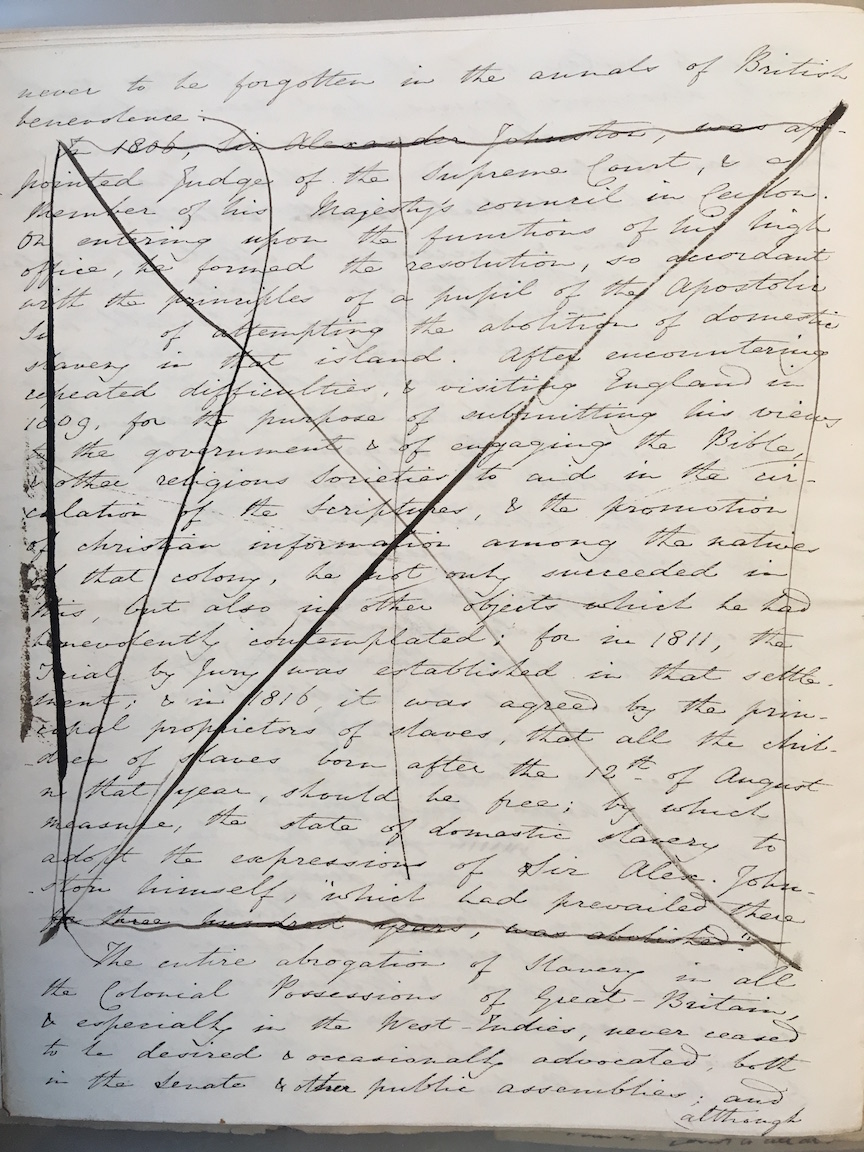 never to be forgotten in the annals of British
benevolence.
In 1806, Sir Alexander Johnston, was ap-
pointed Judge of the Supreme Court, & a
member of his Majesty's council in Ceylon.
On entering upon the functions of his high
office, he formed the resolution, so accordant
with the principles of a pupil of the Apostolic
of attempting the abolition of domestic
slavery in that island. After encountering
repeated difficulties, & visiting England in
1809, for the purpose of submitting his views
to the government & of engaging the Bible,
& other religious Societies to aid in the cir-
culation of the Scriptures, & the promotion
of christian information among the natives
of that colony, he not only succeeded in
this, but also in other objects which he had
benevolently contemplated; for in 1811, the
Trial by Jury was established in that settle-
ment; & in 1816, it was agreed by the prin-
cipal proprietors of slaves, that all the chil-
dren of slaves born after the 12th of August
in that year, should be free; by which
measure, the state of domestic slavery to
adopt the expressions of Sir Alex. John-
ston himself, "which had prevailed there
for three hundred years, was abolished."
The entire abrogation of Slavery in all
the Colonial Possessions of Great-Britain,
& especially in the West-Indies, never ceased
to be desired & occasionally advocated, both
in the Senate & other public assemblies; and
although